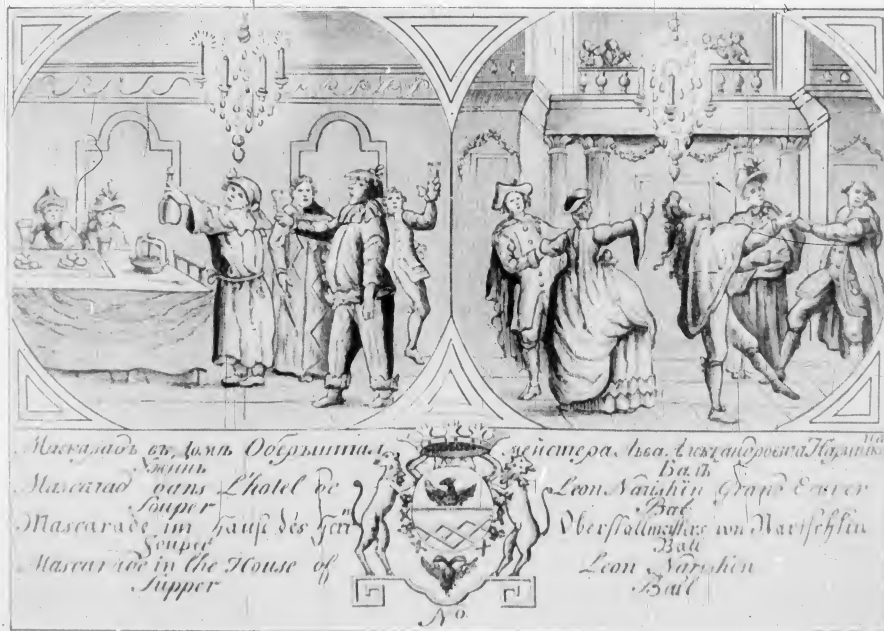 Маскарадъ въ домѣ Оберштал мейстера Льва Александровича Нарышкина
Ужинъ Балъ
Mascarad dans L'hotel de Leon Narishkin Grand Ecurer
Souper Bal
Mascarade im Hause des Herrn Oberstallmeisters von Narischkin
Soupee Ball
Mascarade in the House of Leon Narishkin
Supper Ball
No.